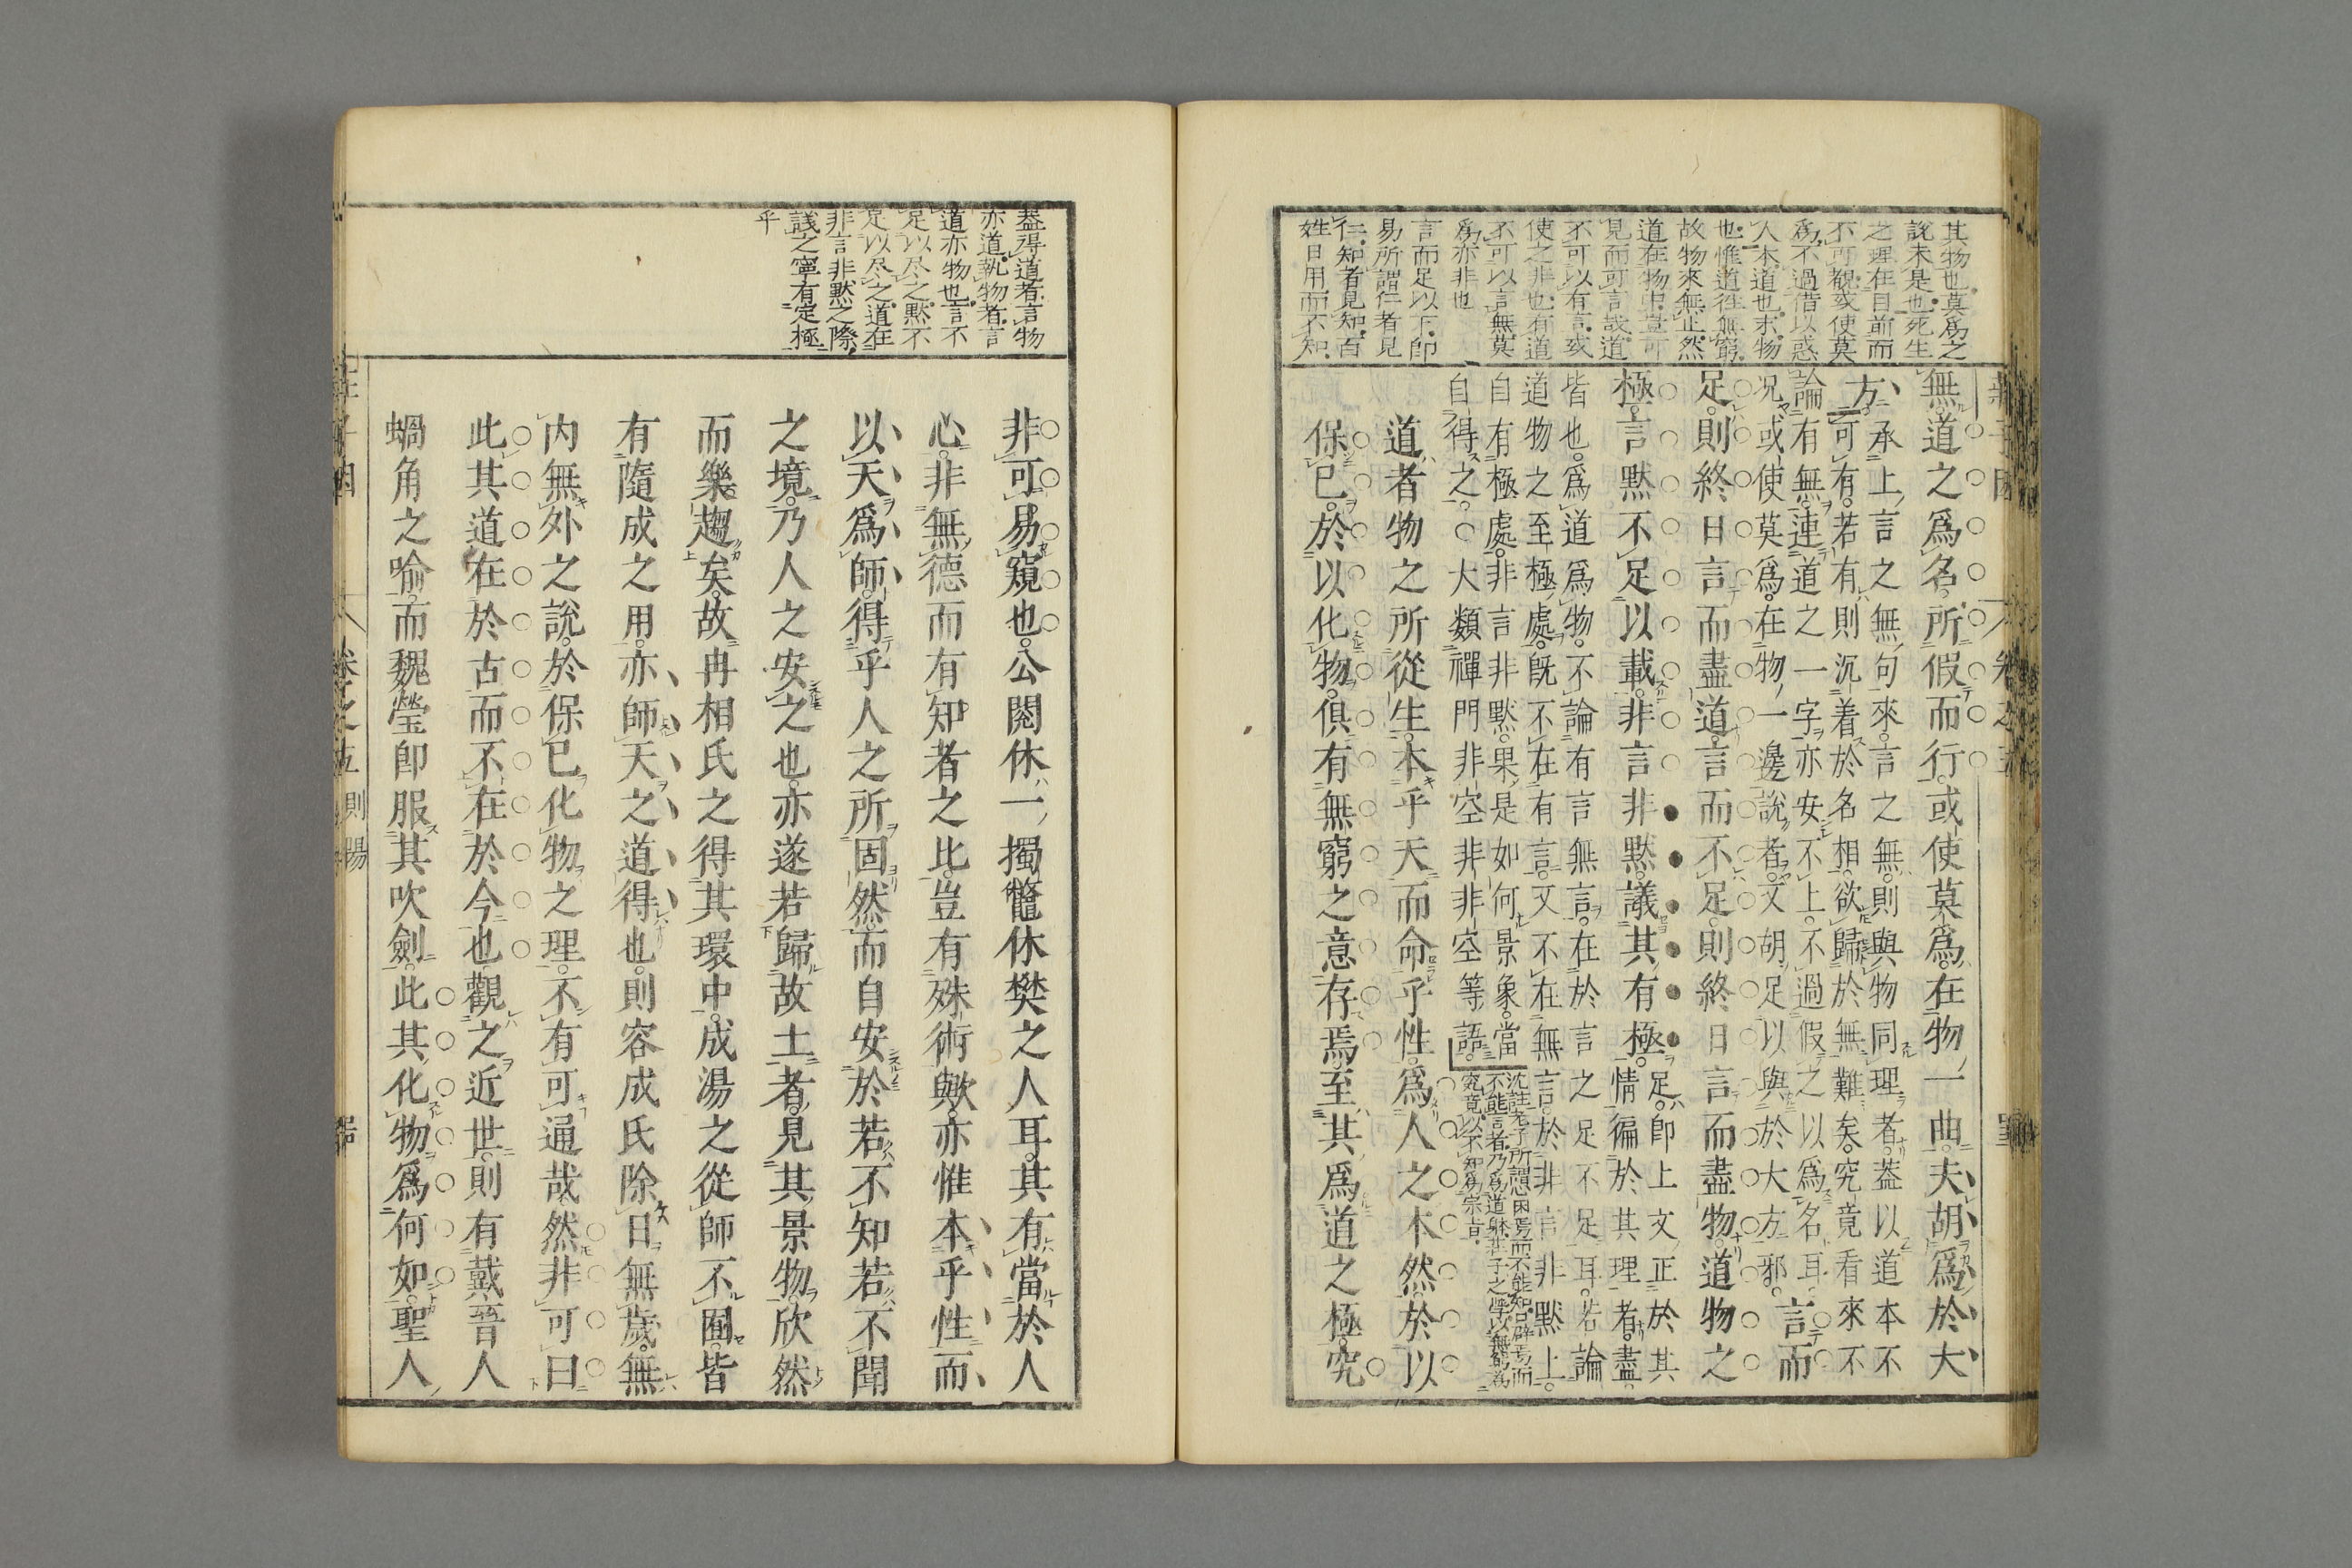 其物也莫爲之
說未是也死生
之理在目前而
不可覩或使莫
爲不過借以惑
人本道也求物
也惟道往無窮
故物來無止然
道在物中豈可
見而可言哉道
不可以有言或
使之非也有道
不可以言無莫
爲亦非也
言而足以下即
易所謂仁者見
仁知者見知百
姓日用而不知
無道之爲名所假而行或使莫爲在物一曲夫胡爲於大
方
承上言之無句來言之無則與物同理者葢以道本不
可有若有則沉着於名相欲歸於無難矣究竟看來不
論有無連道之一字亦安不上不過假之以爲名耳
況或使莫爲在物一邊說者又胡足以與於大方邪
言而
足則終日言而盡道言而不足則終日言而盡物道物之
極言黙不足以載非言非黙議其有極
足即上文正於其
情徧於其理者盡
皆也爲道爲物不論有言無言在於言之足不足耳若論
道物之至極處既不在有言又不在無言於非言非黙上
自有極處非言非黙果是如何景象當
自得之○大類禪門非空非非空等語
道者物之所從生本乎天而命乎性爲人之本然於以
保已於以化物俱有無窮之意存焉至其爲道之極究
葢得道者言物
亦道執物者言
道亦物也言不
足以尽之黙不
足以尽之道在
非言非黙之際
議之寧有定極
乎
非可易窺也公閱休一擉鼈休樊之人耳其有當於人
心非無德而有知者之比豈有殊術歟亦惟本乎性而
以天爲師得乎人之所固然而自安於若不知若不聞
之境乃人之安之也亦遂若歸故土者見其景物欣然
而樂趨矣故冉相氏之得其環中成湯之從師不囿皆
有隨成之用亦師天之道得也則容成氏除日無歲無
内無外之說於保已化物之理不有可通哉然非可曰
此其道在於古而不在於今也觀之近世則有戴晉人
蝸角之喻而魏瑩即服其吹劍此其化物爲何如聖人
卷之五 則陽